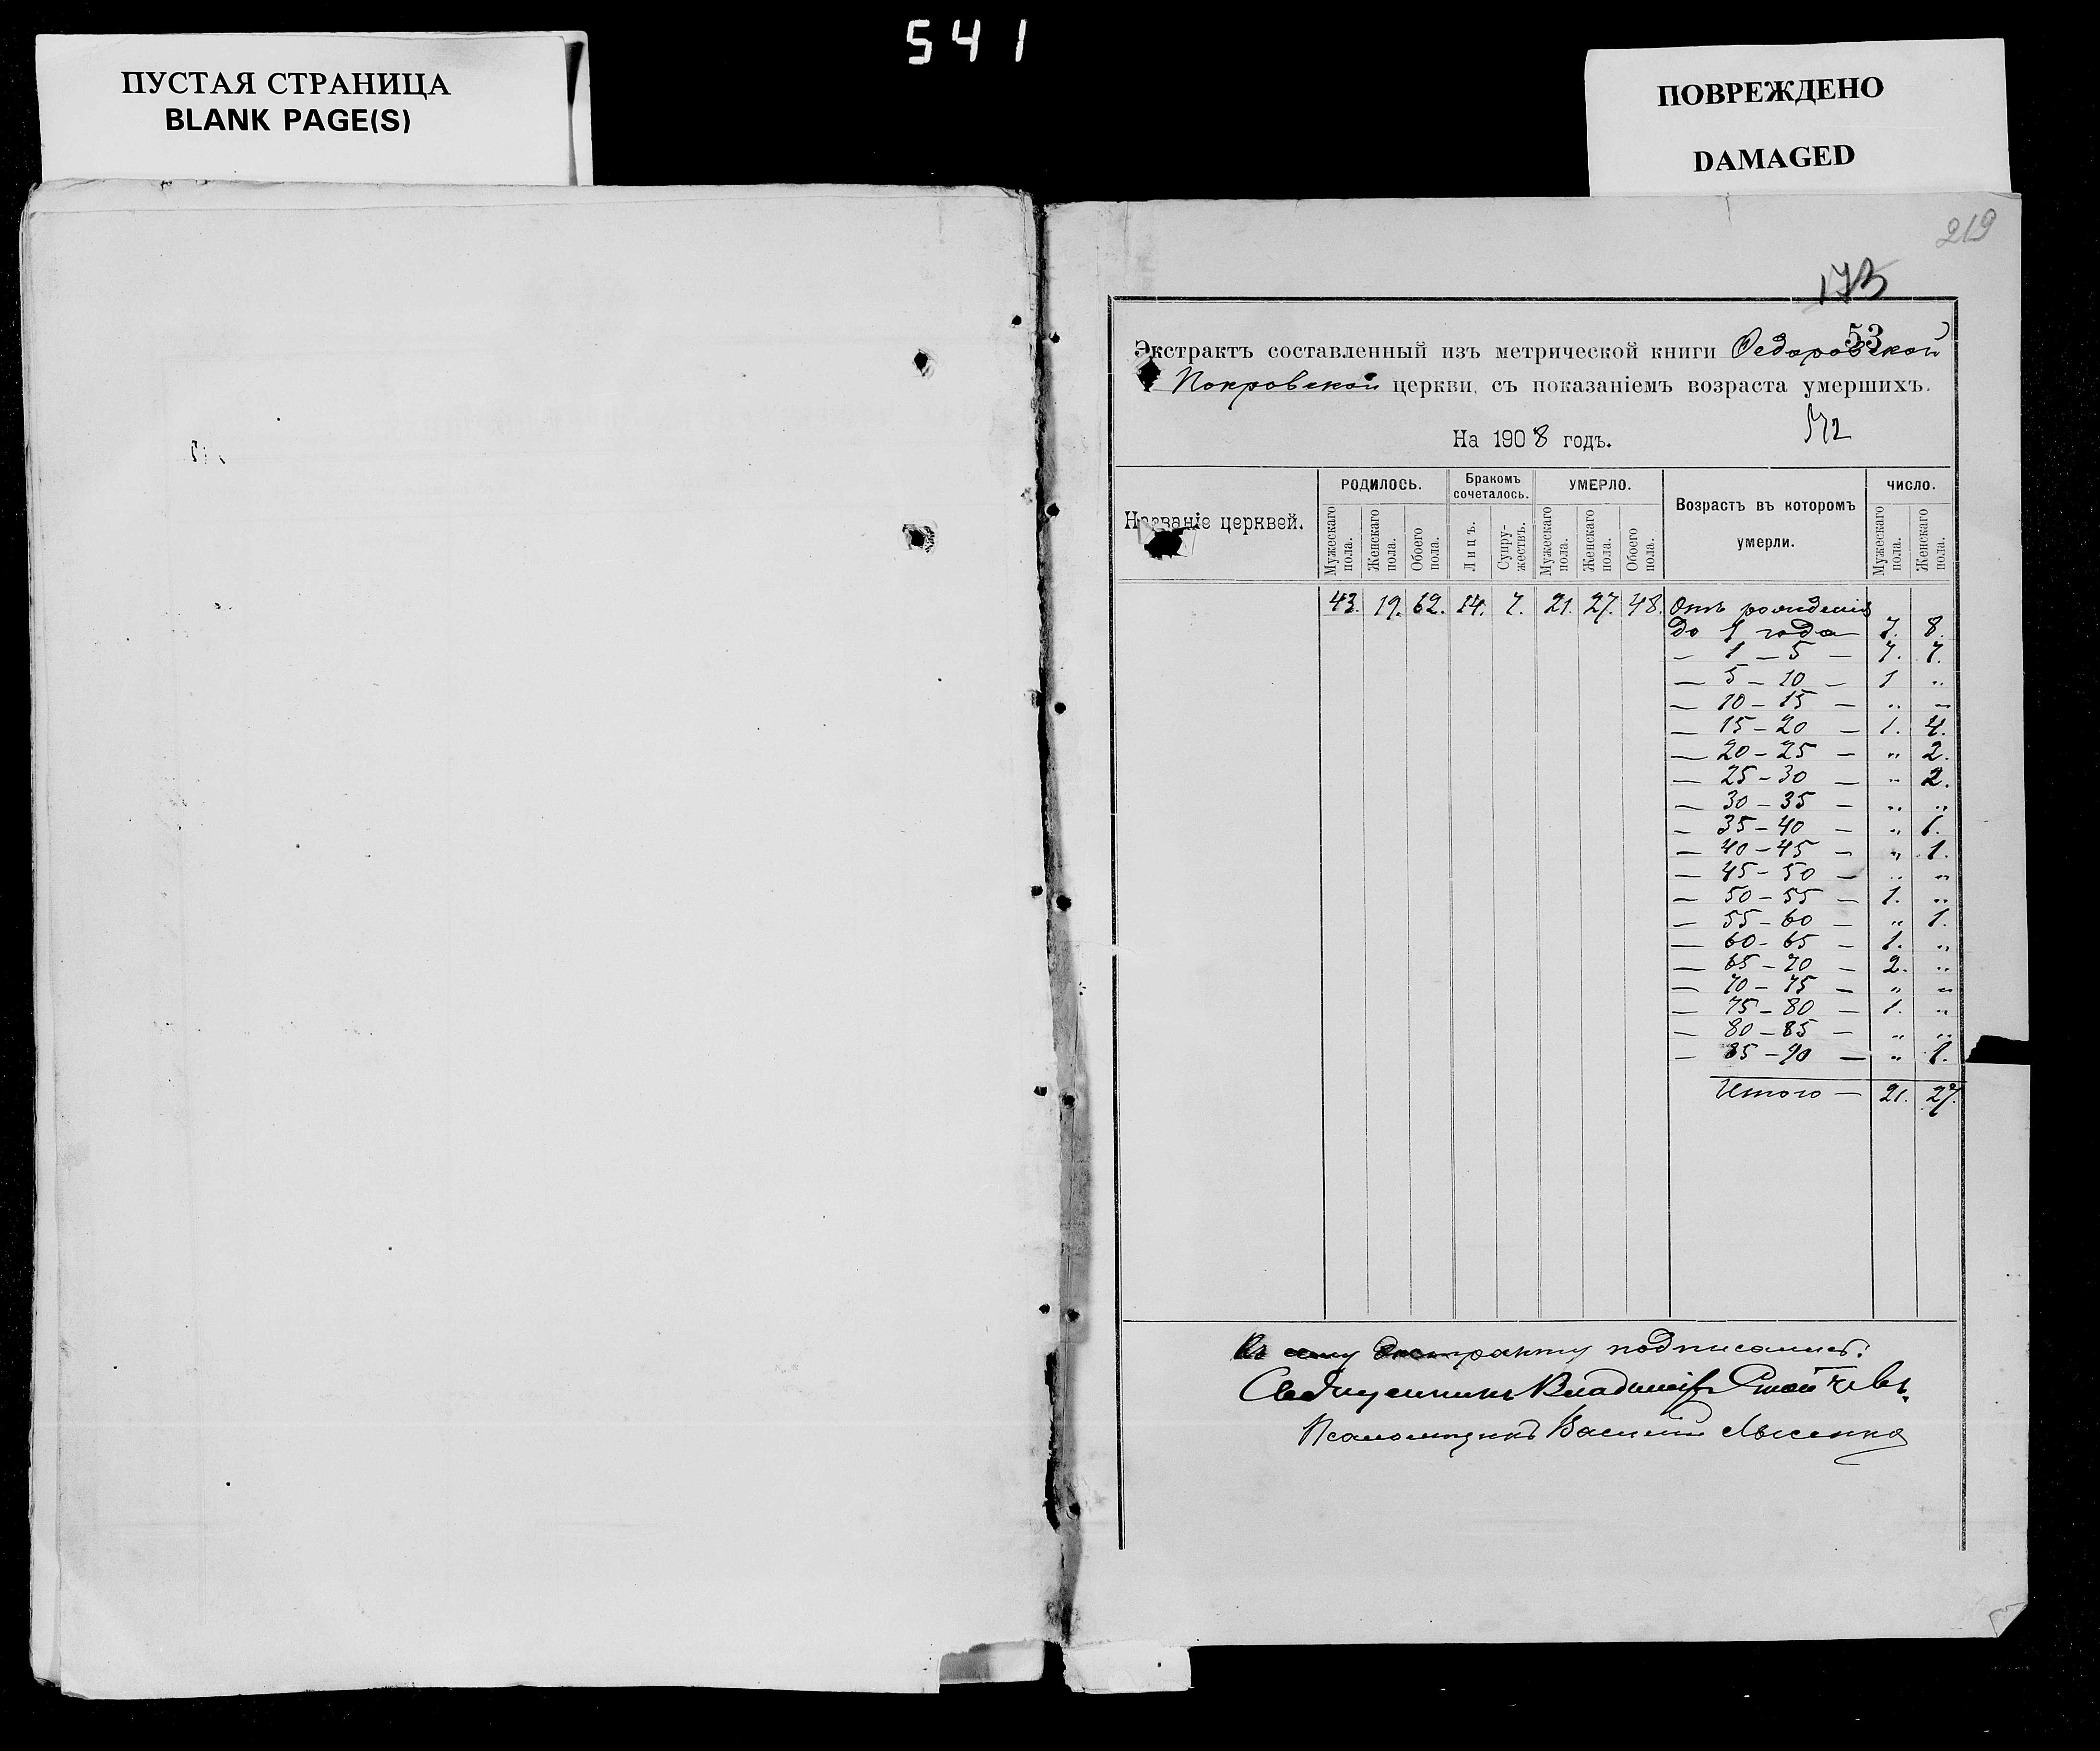 541
ПУСТАЯ СТРАНИЦА
BLANK PAGE(S)
ПОВРЕЖДЕНО
DAMAGED
219
173
53
Экстрактъ составленный изъ метрической книги Ѳедоровской
Покровской церкви, съ показаніемъ возраста умершихъ.
На 1908 годъ.
Названіе церквей.
РОДИЛОСЬ.
Бракомъ сочеталось.
УМЕРЛО.
Возрастъ въ которомъ умерли.
ЧИСЛО.
Мужескаго пола. Женскаго пола. Обоего пола. Лицъ. Супружествъ. Мужескаго пола. Женскаго пола. Обоего пола. Мужескаго пола. Женскаго пола.
43. 19. 62. 14. 7. 21. 27. 48. Отъ рожденія
До 1 года 7. 8.
— 1 — 5 — 7. 7.
— 5 — 10 — 1 „
— 10 — 15 — „ „
— 15 — 20 — 1. 4.
— 20 — 25 — „ 2.
— 25 — 30 — „ 2.
— 30 — 35 — „ „
— 35 — 40 — „ 1.
— 40 — 45 — „ 1.
— 45 — 50 — „ „
— 50 — 55 — 1. „
— 55 — 60 — „ 1.
— 60 — 65 — 1. „
— 65 — 70 — 2. „
— 70 — 75 — „ „
— 75 — 80 — 1. „
— 80 — 85 — „ „
— 85 — 90 — „ 1.
Итого — 21. 27.
Къ сему экстракту подписались:
Священникъ Владиміръ
Псаломщикъ Василій Лысенко